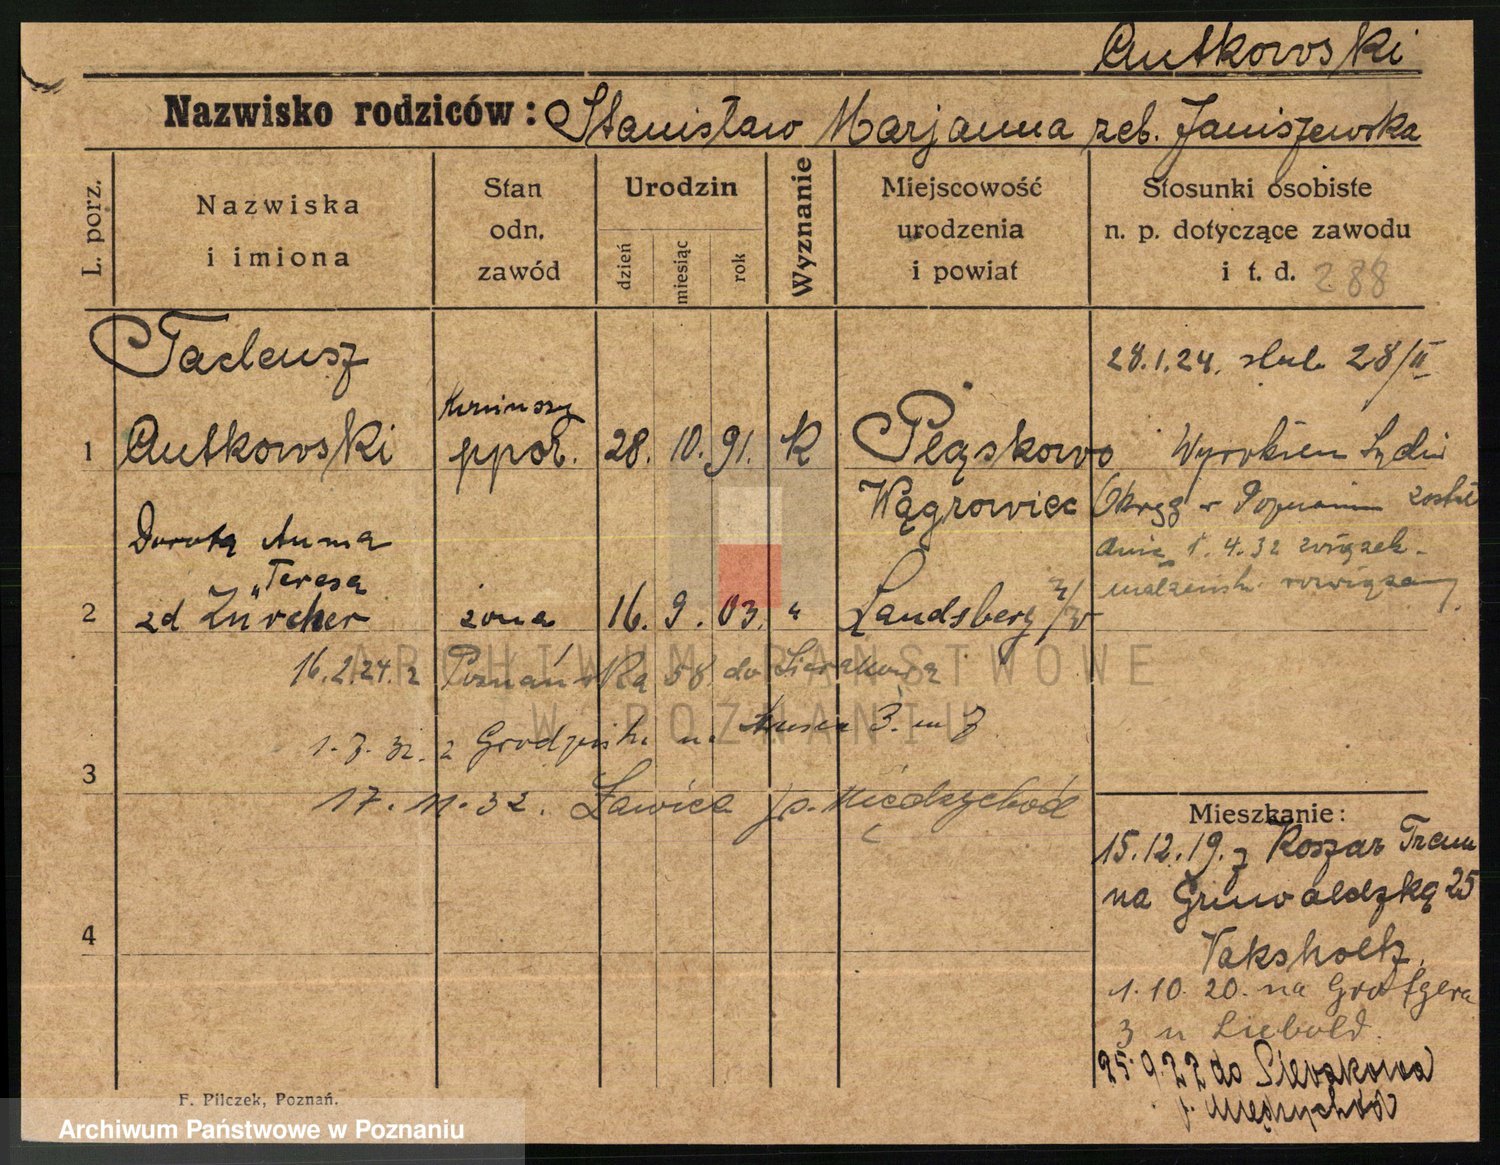 Autkowski
Nazwisko rodziców: Stanisław Marjanna zeb. Janiszewska
L. porz.
Nazwiska
i imiona
Stan
odn.
zawód
Urodzin
dzień
miesiąc
rok
Wyznanie
Miejscowość
urodzenia
i powiat
Stosunki osobiste
n. p. dotyczące zawodu
i t. d. 288
Tadeusz
28.1.24. ślub 28/II
1 Autkowski ppor. 28. 10. 91. K Pląskowo
Wągrowiec
Wyrokiem Sądu
Okręg w Poznaniu został
dnia 1.4.32 związek
małżeńsk. rozwiązany
Dorota Anna
"Teresa
2 zd Zürcher żona 16. 9. 03. " Landsberg n/W
16.2.24. z Poznańska 58 do Sierakowa
1.7.32. z Grodzisk. n. 3. m 7
3
17.11.32. Ławica p. Międzychód
4
Mieszkanie:
15.12.19. z Koszar Tren
na Grunwaldzką 25
1.10.20. na Grottgera
3 u Liebold.
25.9.22 do Sierakowa
p. Międzychód
F. Pilczek, Poznań.
ARCHIWUM PAŃSTWOWE
W POZNANIU
Archiwum Państwowe w Poznaniu